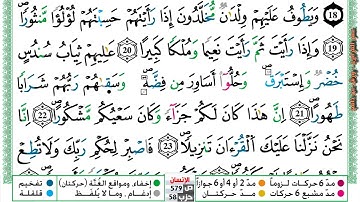 18 وَيَطُوفُ عَلَيْهِمْ وِلْدَٰنٌ مُّخَلَّدُونَ إِذَا رَأَيْتَهُمْ حَسِبْتَهُمْ لُؤْلُؤًا مَّنثُورًا
19 وَإِذَا رَأَيْتَ ثَمَّ رَأَيْتَ نَعِيمًا وَمُلْكًا كَبِيرًا 20 عَٰلِيَهُمْ ثِيَابُ سُندُسٍ
خُضْرٌ وَإِسْتَبْرَقٌ وَحُلُّوٓا۟ أَسَاوِرَ مِن فِضَّةٍ وَسَقَىٰهُمْ رَبُّهُمْ شَرَابًا
طَهُورًا 21 إِنَّ هَٰذَا كَانَ لَكُمْ جَزَآءً وَكَانَ سَعْيُكُم مَّشْكُورًا 22 إِنَّا
نَحْنُ نَزَّلْنَا عَلَيْكَ ٱلْقُرْءَانَ تَنزِيلًا 23 فَٱصْبِرْ لِحُكْمِ رَبِّكَ وَلَا تُطِعْ
مدّ 6 حركات لزوماً مدّ 2 أو 4 أو 6 جوازاً
مدّ مشبع 6 حركات مدّ حركتان
الإنسان
ص 579
حزب 58
إخفاء، ومواقع الغُنَّة (حركتان) تفخيم
إدغام، وما لا يُلفَظ قلقلة